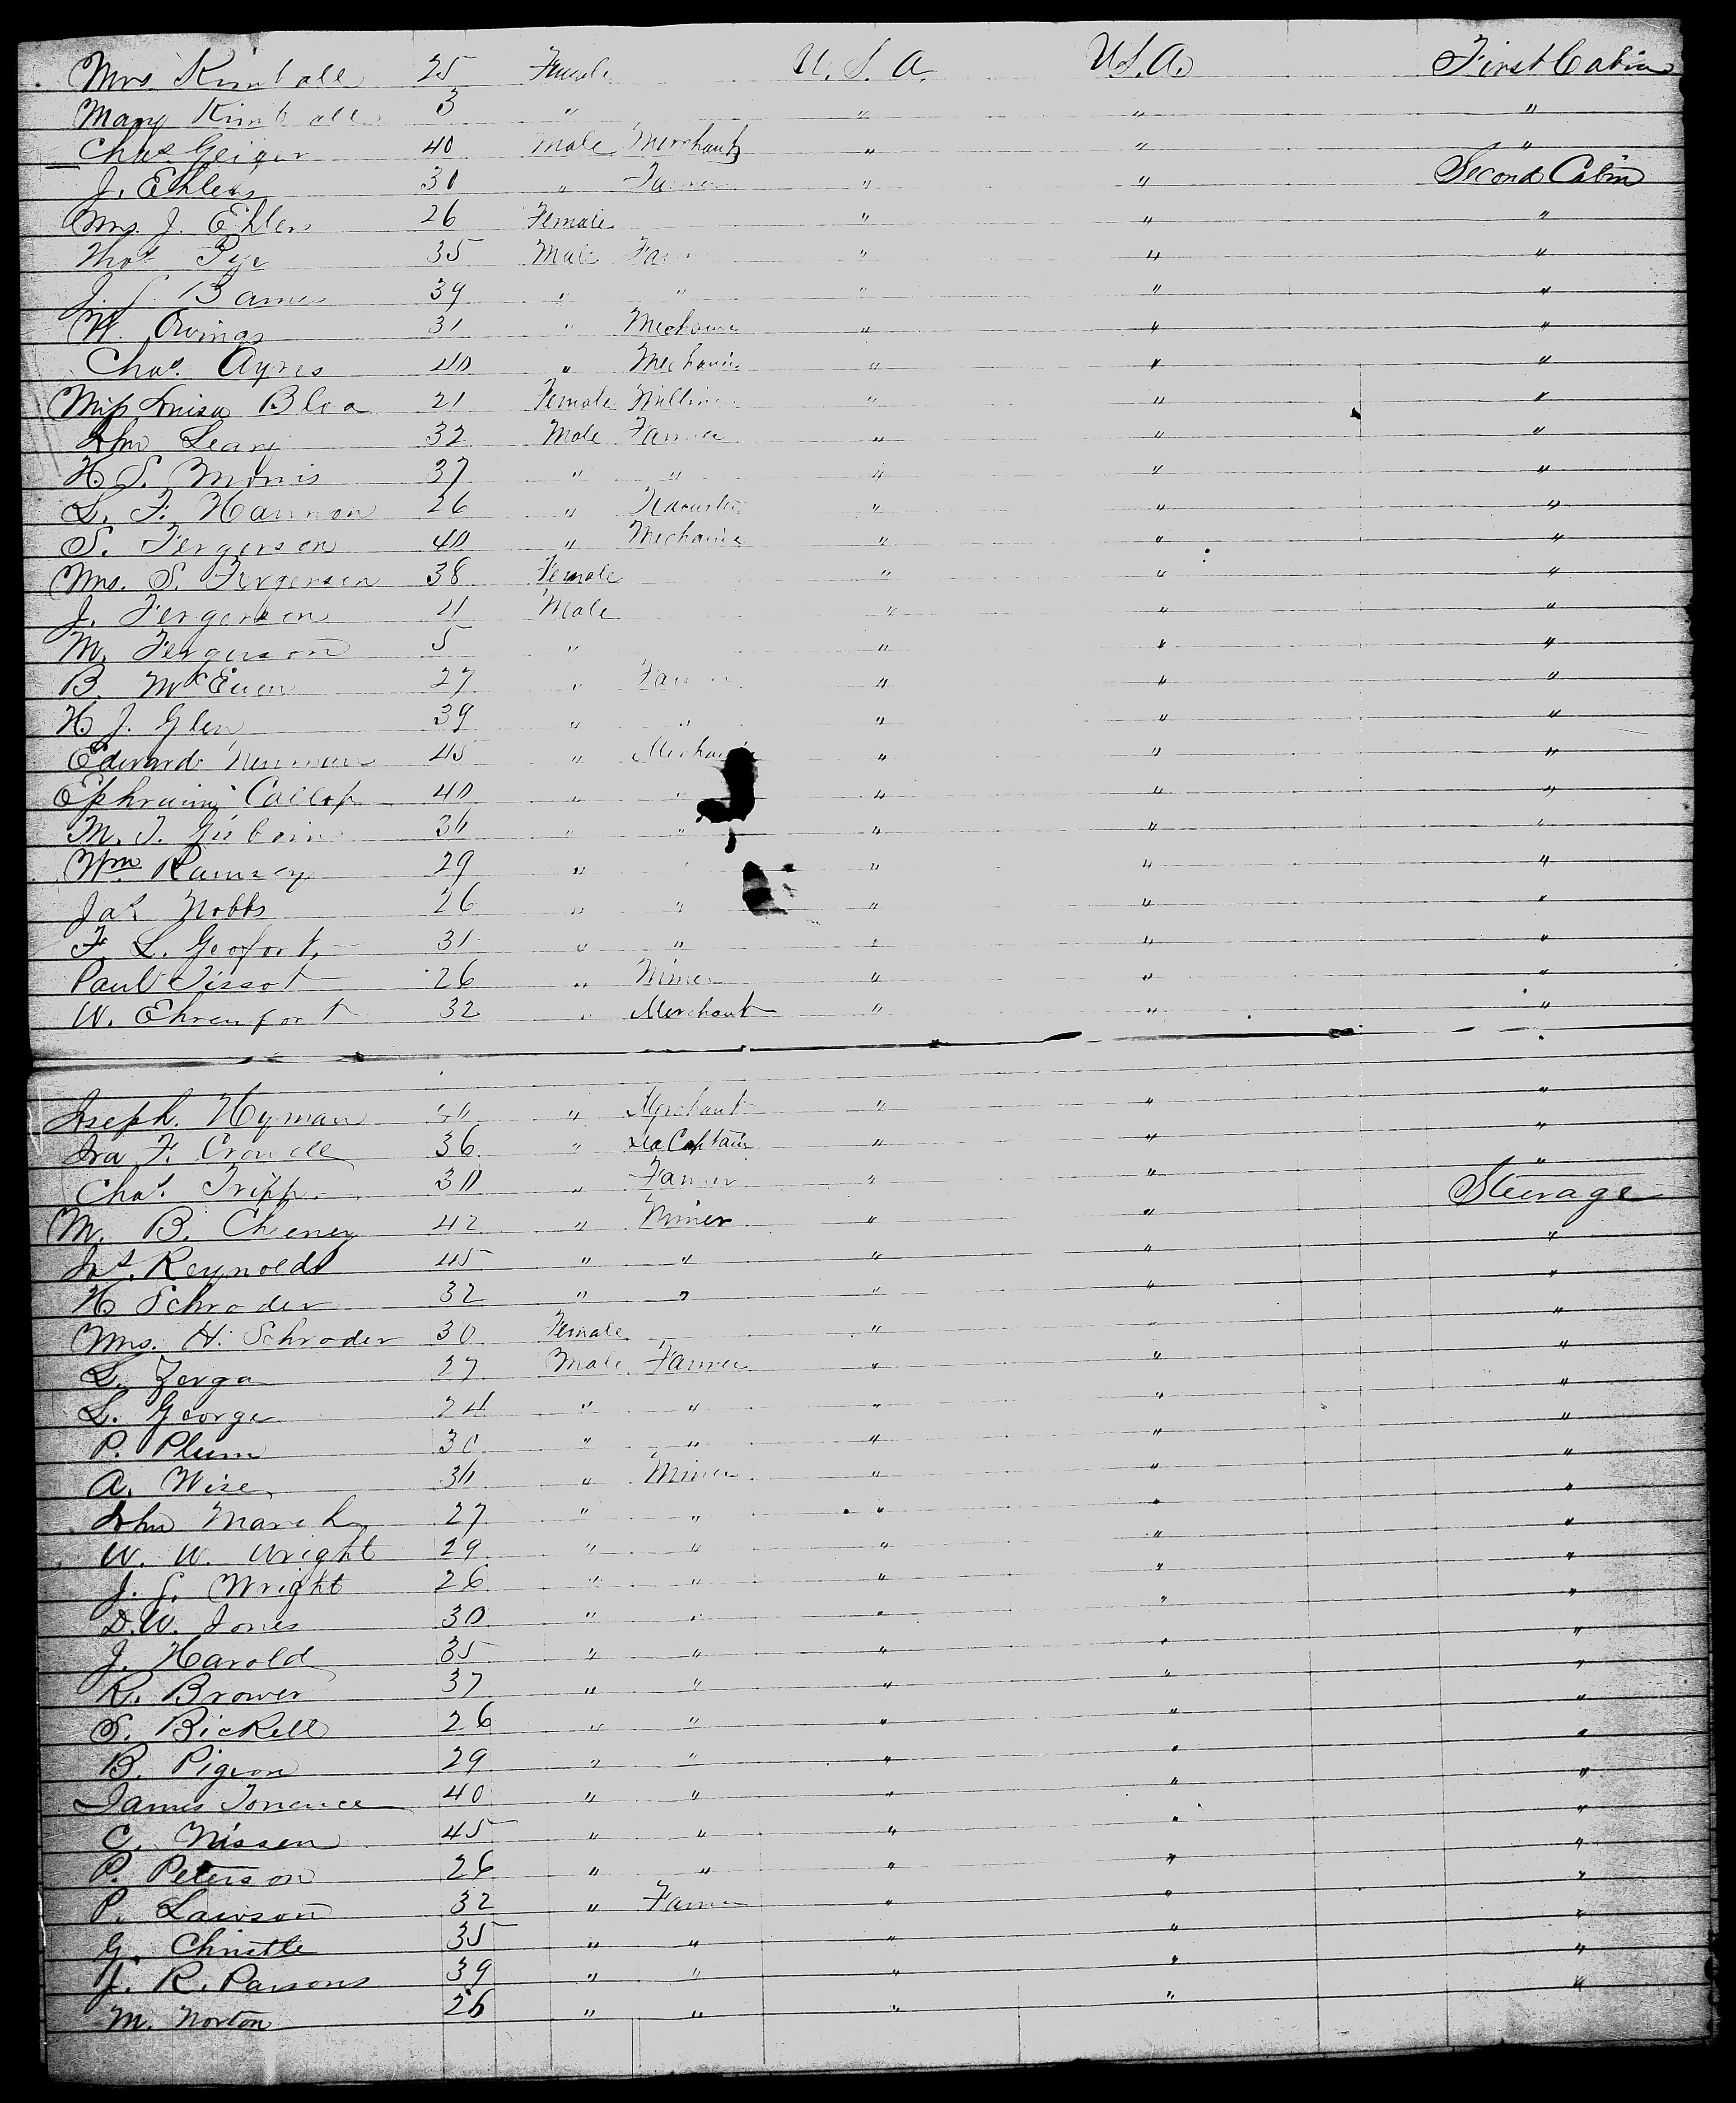 Mrs Kimball 25 Female U.S.A. U.S.A. First Cabin
Mary Kimball 3 " " " "
Chas Geiger 40 Male Merchant " " "
J. Ehlers 30 " Farmer " " Second Cabin
Mrs. J. Ehlers 26 Female " " "
Thos Pye 35 Male Farmer " " "
J. S. Barnes 39 " " " " "
W. Owings 31 " Mechanic " " "
Chas. Ayres 40 " Mechanic " " "
Miss Luisa Bloa 21 Female Milliner " " "
Jno Leary 32 Male Farmer " " "
H. S. Morris 37 " " " " "
L. F. Harmon 26 " " " "
S. Fergerson 40 " Mechanic " " "
Mrs. S. Fergerson 38 Female " " "
J. Fergerson 11 Male " " "
M. Fergerson 5 " " " "
B. McEuen 27 " Farmer " " "
H. J. Glen 39 " " " " "
Edward Newman 45 " " " "
Ephraim Callop 40 " " " " "
M. T. 36 " " " " "
Wm Ramsey 29 " " " " "
Jas Nobbs 26 " " " " "
F. L. Geofort 31 " " " " "
Paul Tissot 26 " Miner " " "
W. Ehrenfort 32 " Merchant " " "
Joseph Hyman 40 " Merchant " " "
Ira F. Crowell 36 " Sea Captain " " "
Chas. Tripp 30 " Farmer " " "
M. B. Cheeney 42 " Miner " " Steerage
Jos. Reynolds 45 " " " " "
H Schroder 32 " " " " "
Mrs. H. Schroder 30 Female " " "
L. Zerga 27 Male Farmer " " "
L. George 24 " " " " "
P. Plum 30 " " " " "
A. Wise 36 " Miner " " "
John March 27 " " " " "
W. W. Wright 29 " " " " "
J. S. Wright 26 " " " " "
D. W. Jones 30 " " " " "
J. Harold 35 " " " " "
R. Brower 37 " " " " "
S. Bickell 26 " " " " "
B. Pigeon 29 " " " " "
James Torrence 40 " " " " "
C. Nissen 45 " " " " "
P. Peterson 26 " " " " "
P. Lawson 32 " Farmer " " "
G. Christle 35 " " " " "
J. R. Parsons 39 " " " " "
M. Norton 26 " " " " "